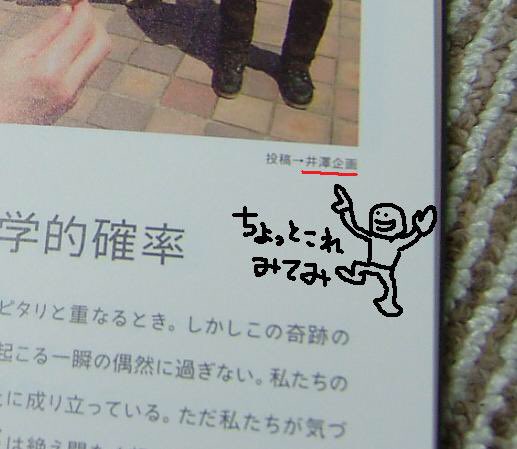 投稿→井澤企画
ちょっとこれ
みてみ
学的確率
ピタリと重なるとき。しかしこの奇跡の
起こる一瞬の偶然に過ぎない。私たちの
に成り立っている。ただ私たちが気づ
は絶え間なく